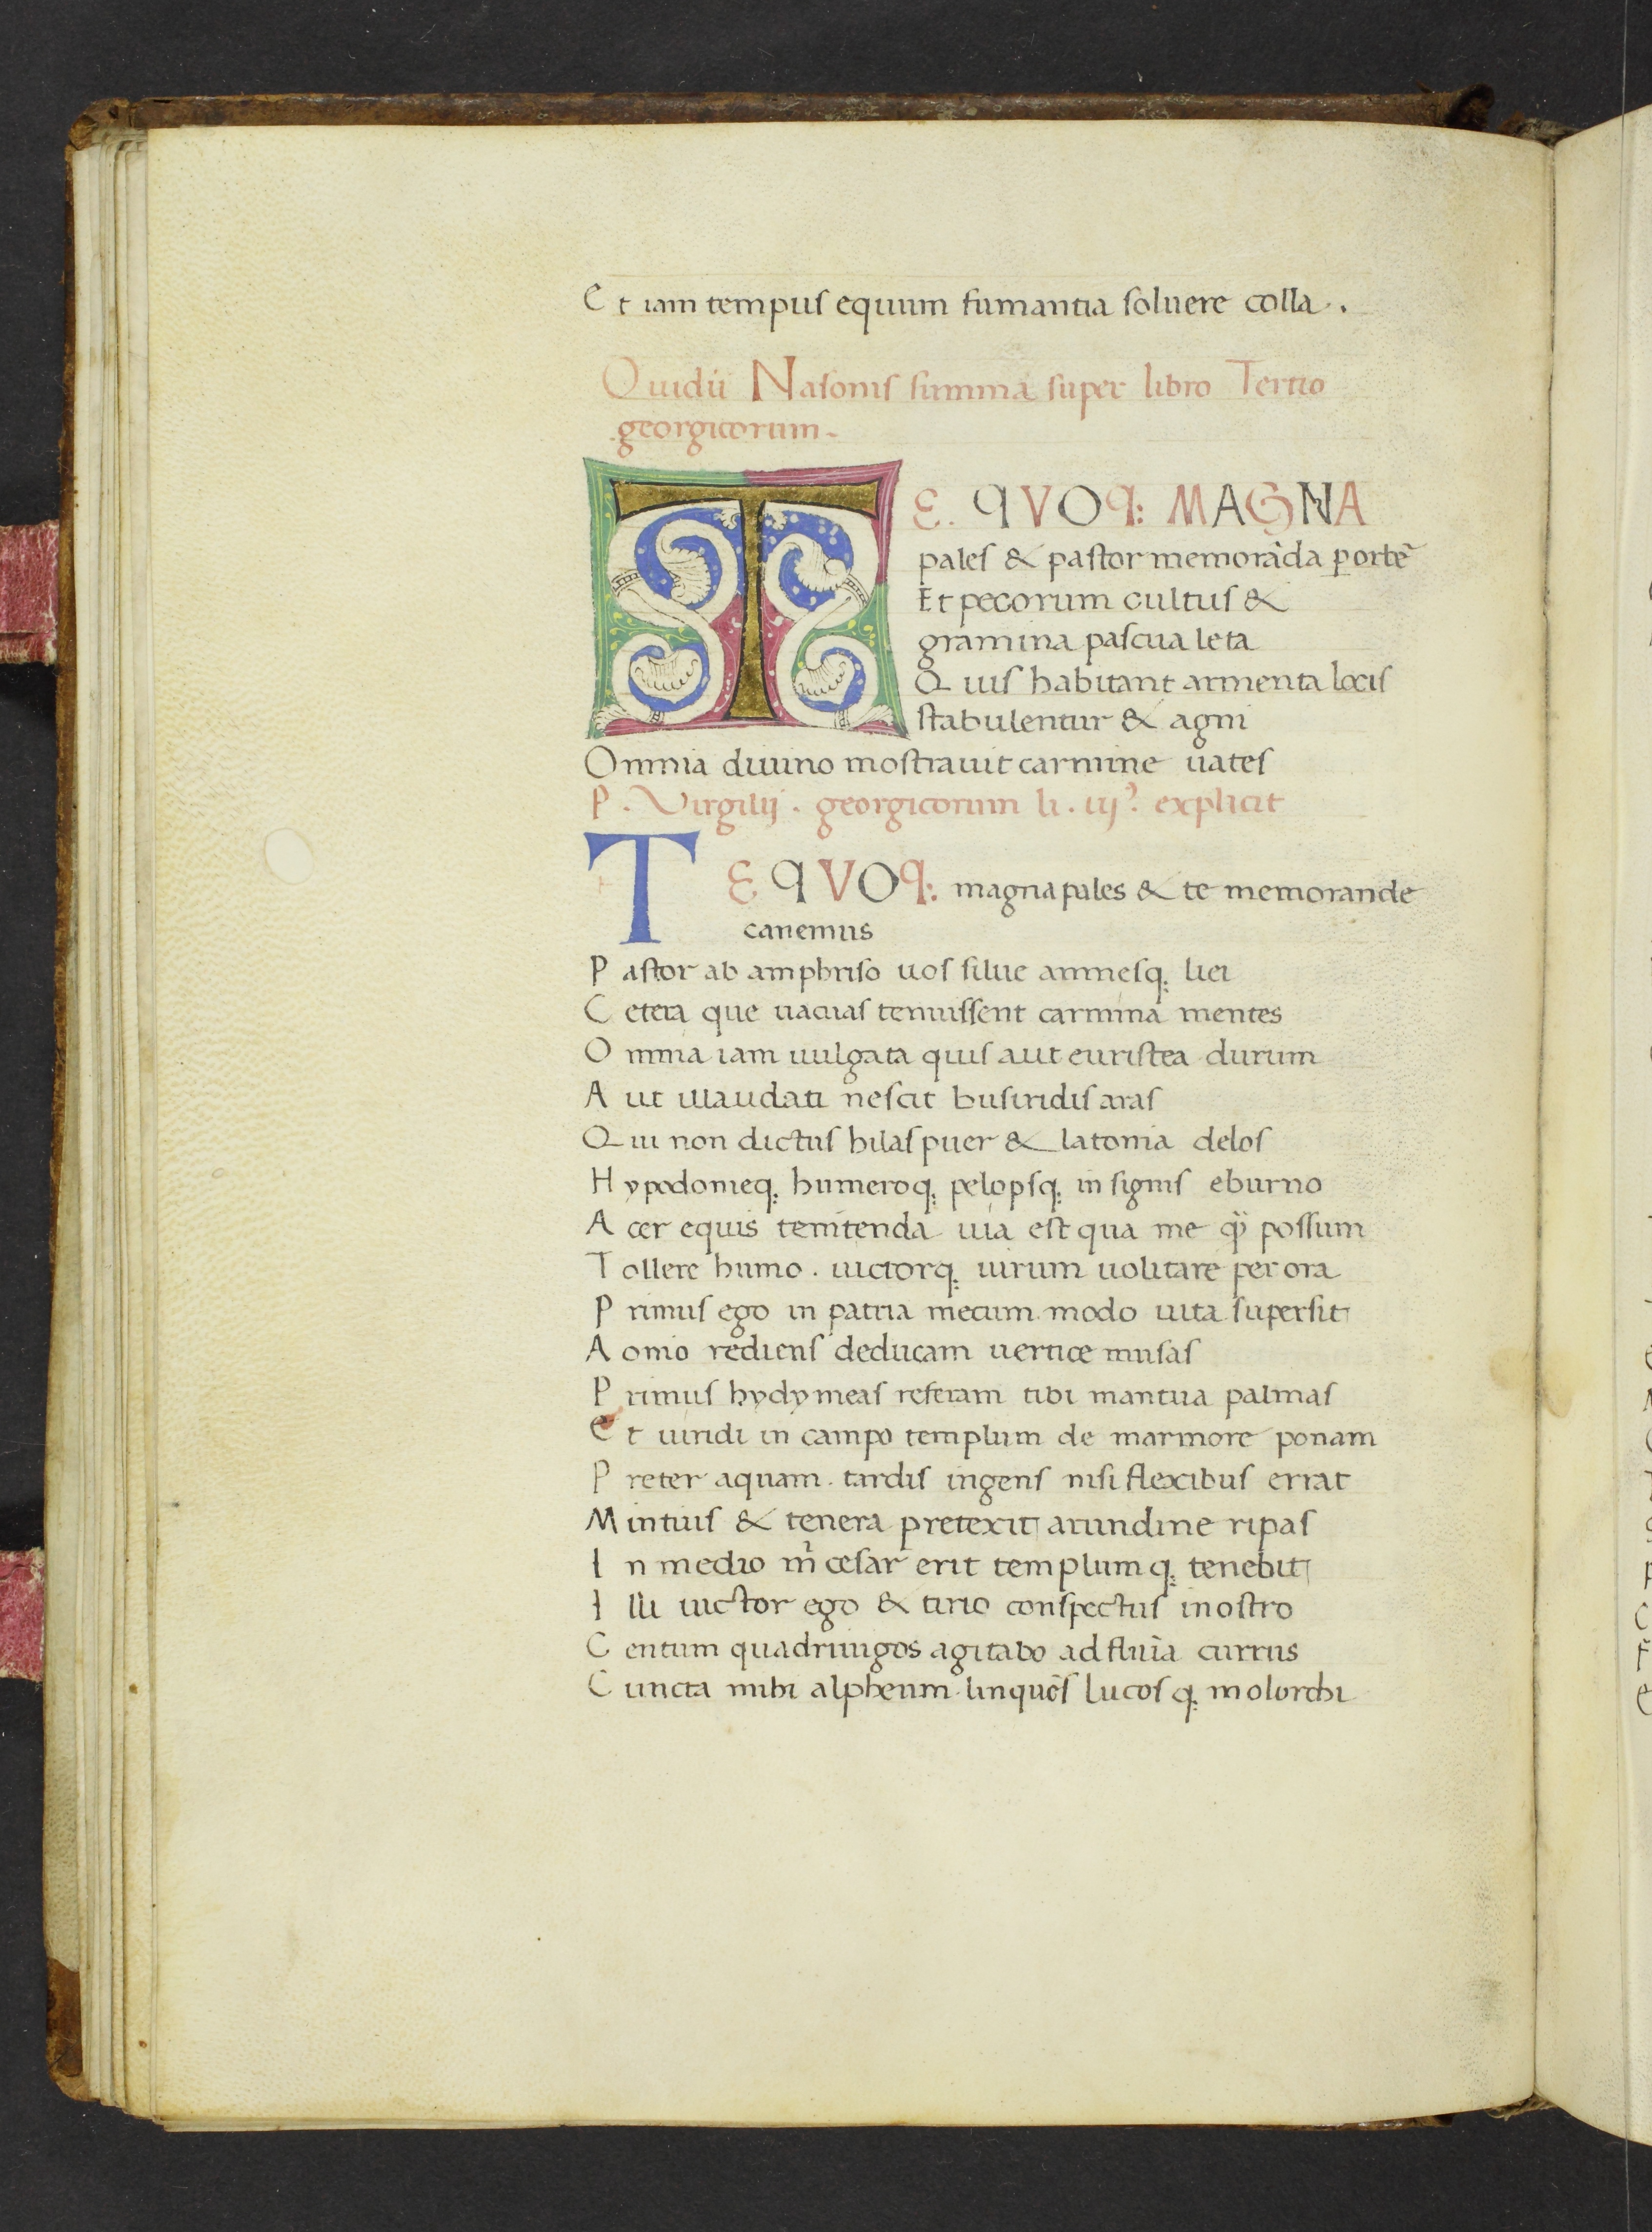 Et iam tempus equum fumantia soluere colla.
Ouidii Nasonis summa super libro Tertio
georgicorum.
TE. QVOq: MAGNA
pales & pastor memorāda ꝑ orbē
Et pecorum cultus &
gramina pascua leta
Quis habitant armenta locis
stabulentur & agni
Omnia diuino mostrauit carmine uates
P. Virgilij. georgicorum li. iijº. explicit
TE QVOq: magna pales & te memorande
canemus
Pastor ab amphriso uos silue amnesq; licei
Cetera que uacuas tenuissent carmina mentes
Omnia iam uulgata quis aut euristea durum
Aut illaudati nescit busiridis aras
Qui non dictus hilas puer & latonia delos
Hypodomeq; humeroq; pelopsq; insignis eburno
Acer equis temtenda uia est qua me qͦꝫ possum
Tollere humo. uictorq; uirum uolitare per ora
Primus ego in patria mecum modo uita supersit
Aonio rediens deducam uertice musas
Primus hydymeas referam tibi mantua palmas
Et uiridi in campo templum de marmore ponam
Preter aquam. tardis ingens nisi flexibus errat
Mintius & tenera pretexit arundine ripas
In medio m̄ cesar erit templumq; tenebit
Illi uictor ego & tirio conspectus in ostro
Centum quadriiugos agitabo ad fluīa currus
Cuncta mihi alpheum linquēs lucosq; molorchi